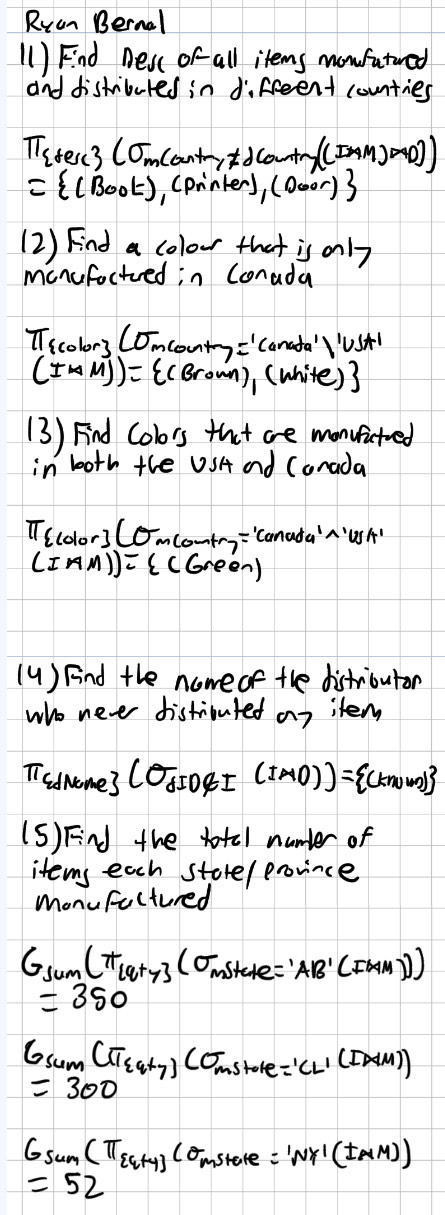 Ryan Bernal
11) Find Desc of all items manufatured
and distributed in different countries
π{desc} (σmCountry≠dCountry((I⋈M)⋈D))
= {(Book), (Printer), (Door)}
12) Find a colour that is only
manufactured in Canada
π{color} (σmCountry='Canada'\'USA'
(I⋈M))= {(Brown), (White)}
13) Find Colors that are manufactred
in both the USA and Canada
π{color} (σmCountry='Canada'^'USA'
(I⋈M))= {(Green)
14) Find the name of the distributor
who never distributed any item
π{dName} (σdID∉I (I⋈D))={(Known)}
15) Find the total number of
items each state/province
manufactured
Gsum(π{qty} (σmState='AB' (I⋈M)))
= 350
Gsum (π{qty} (σmstate='CL' (I⋈M))
= 300
Gsum (π{qty} (σmstate = 'NY' (I⋈M))
= 52